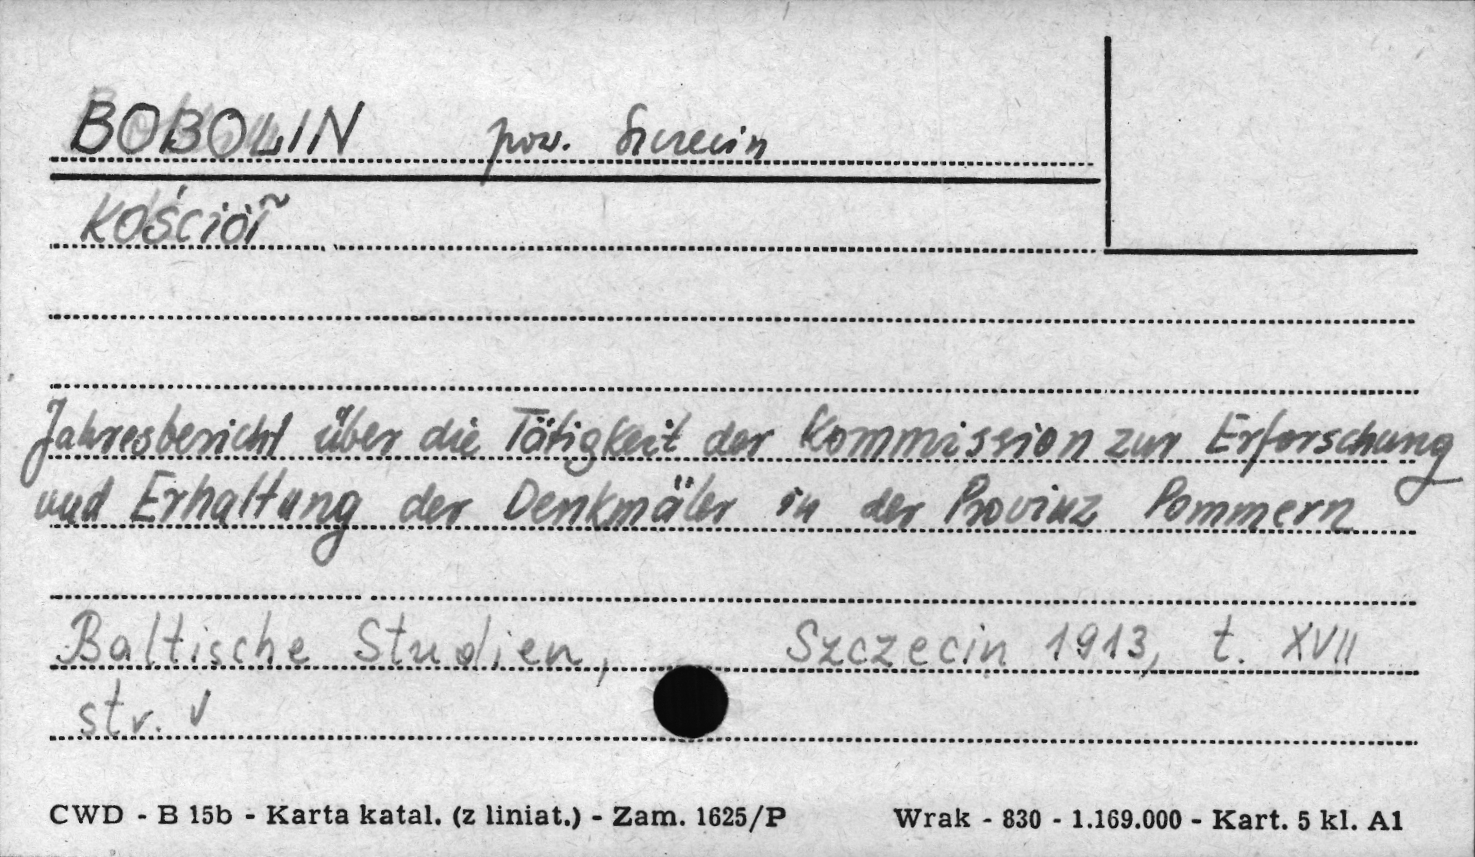 BOBOLIN pow. Szczecin
KOŚCIÓŁ
Jahresbericht über die Tätigkeit der Kommission zur Erforschung
und Erhaltung der Denkmäler in der Provinz Pommern
Baltische Studien, Szczecin 1913, t. XVII
str. V
CWD - B 15b - Karta katal. (z liniat.) - Zam. 1625/P Wrak - 830 - 1.169.000 - Kart. 5 kl. A1